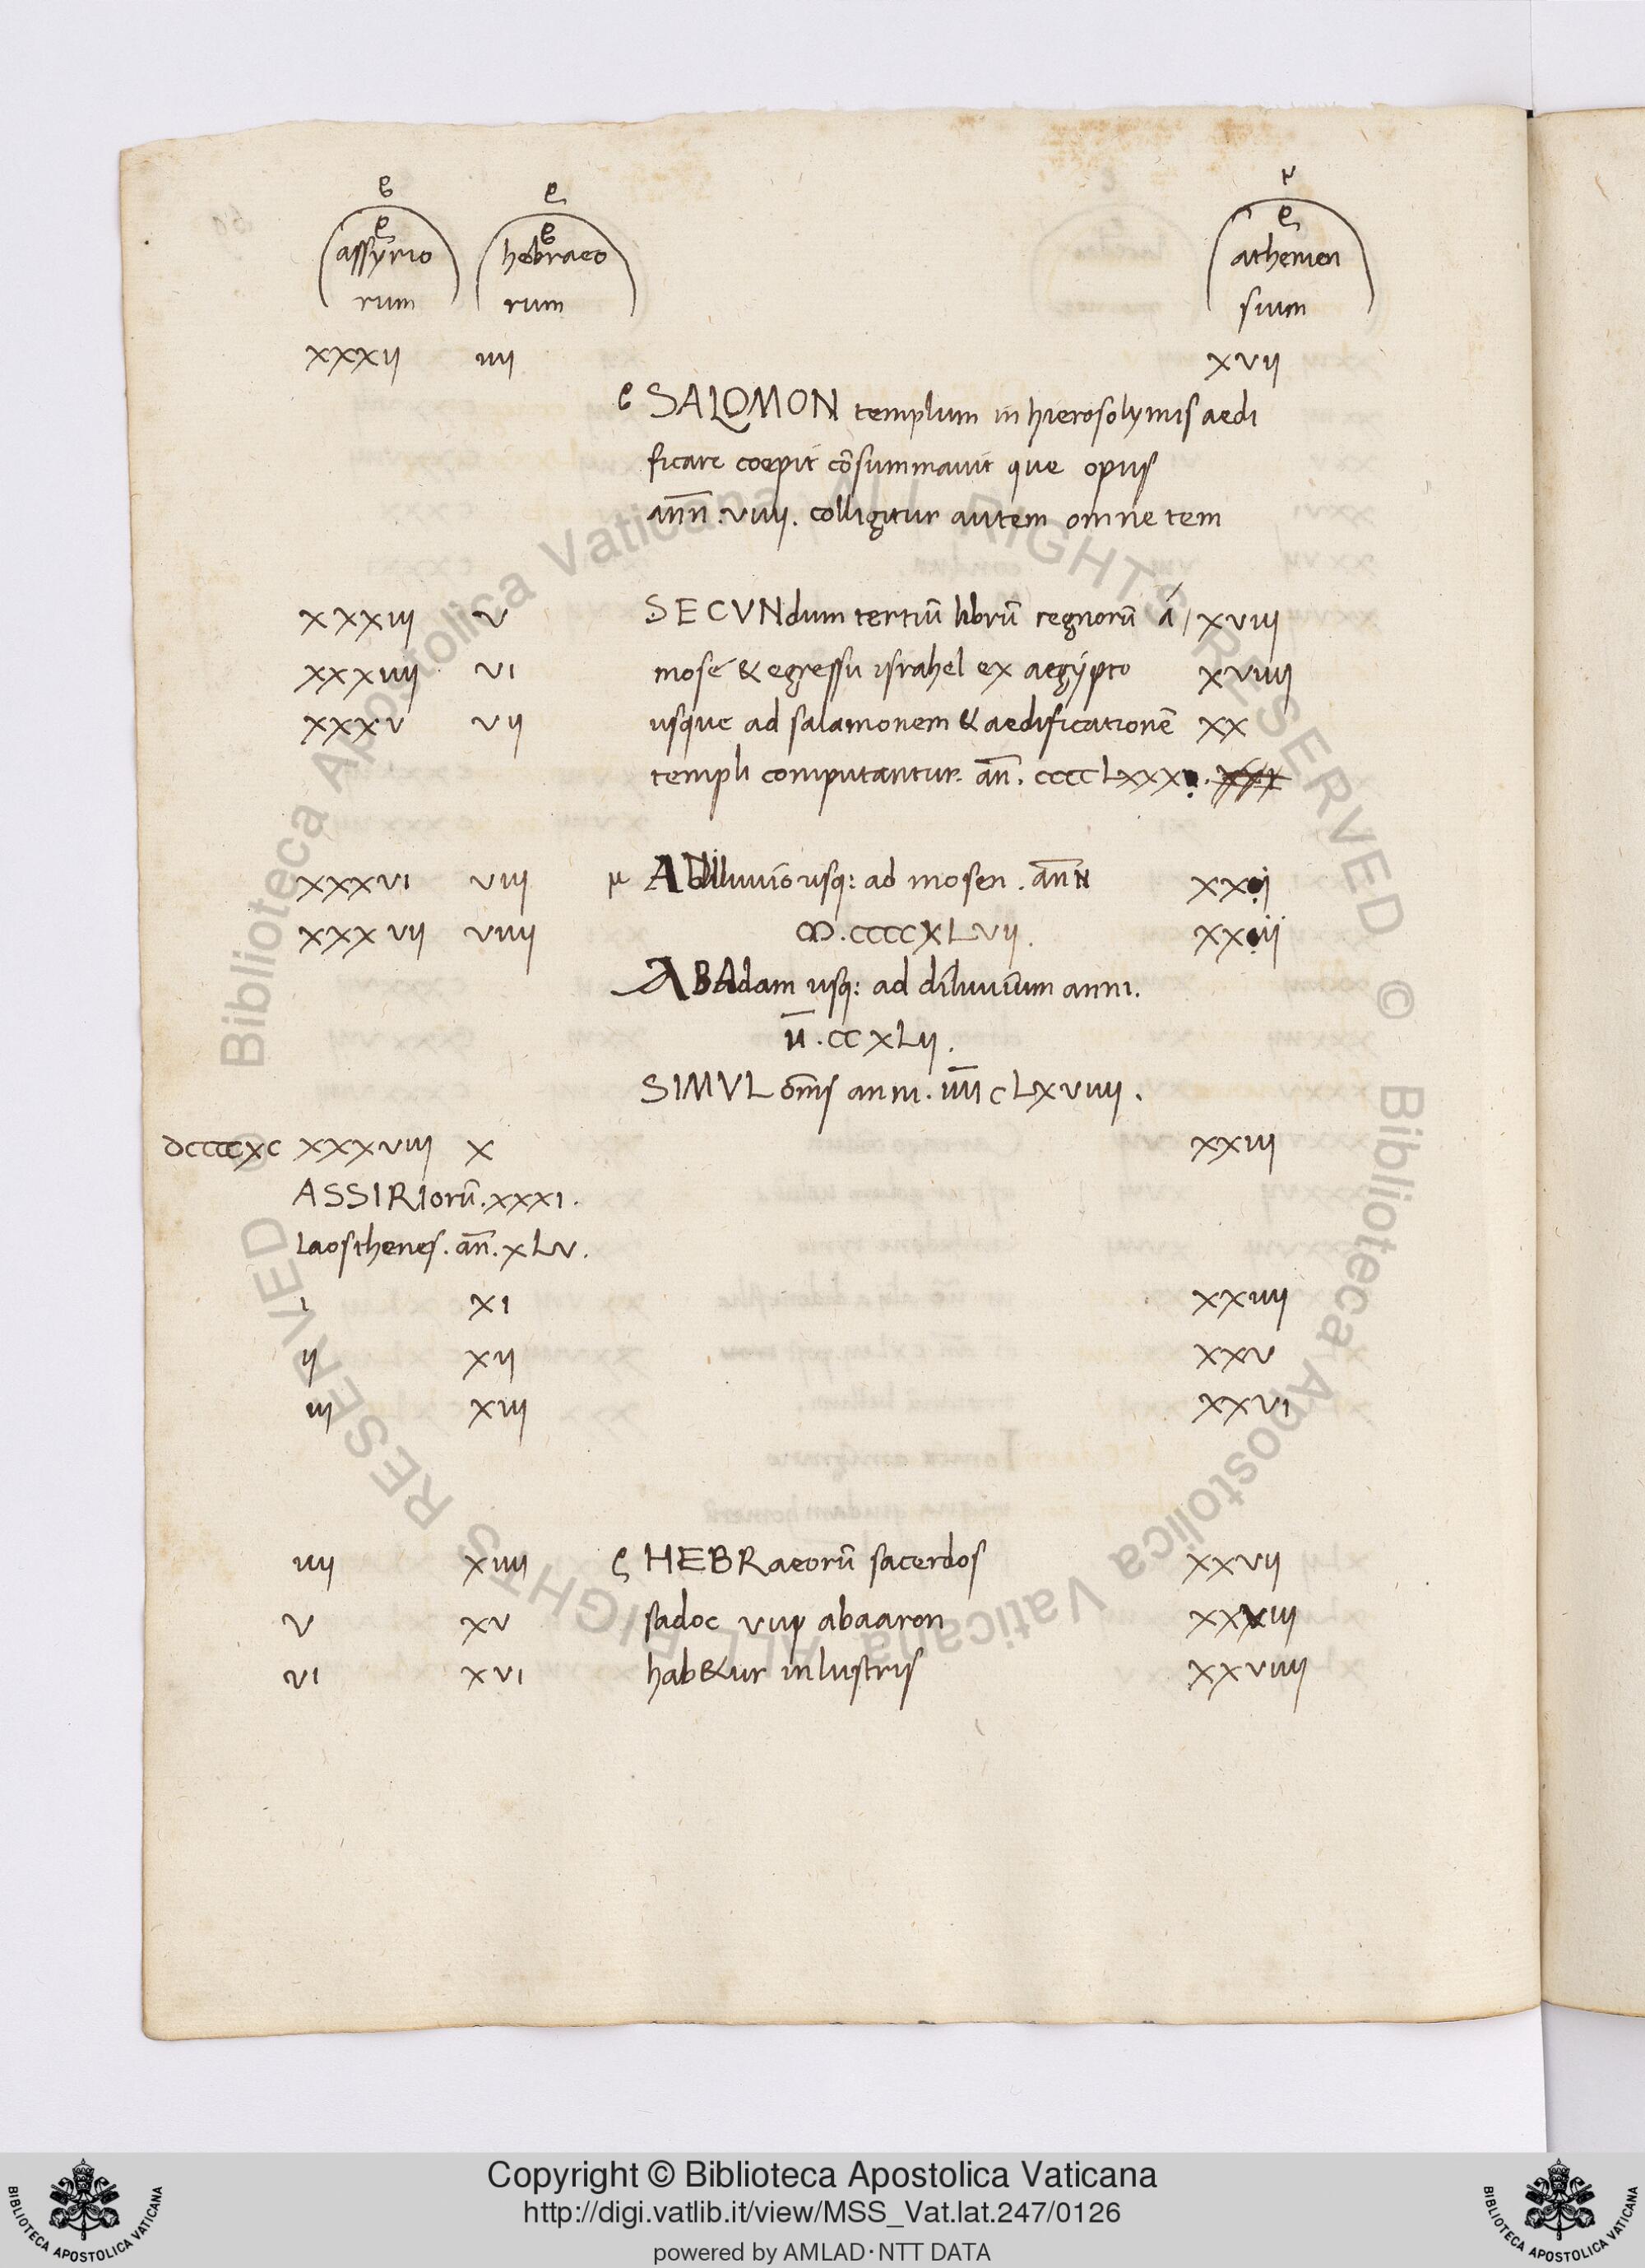 assyrio hebraeo athenien
rum rum sium
xxxii iiii xvii
SALOMON templum in hierosolymis aedi
ficare coepit cōsummavit que opus
ann̄. viiii. colligitur autem omne tem
xxxiii v SECVNdum tertiū librū regnorū á / xviii
xxxiiii vi mosé & egressu israhel ex aegypto xviiii
xxxv vii usque ad salamonem & aedificationē xx
templi computantur. an̄. ccccLxxx.
xxxvi viii μ Adiluvio usq: ad mosen. an̄N xxi
xxxvii viiii ꝏ.ccccxLvii. xxii
ABAdam usq: ad diluvium anni.
īī.ccxLii.
SIMVL om̄s anni. īīīī cLxviiii.
dccccxc xxxviii x xxiii
ASSIRIorū.xxxi.
Laosthenes. an̄. xLv.
i xi xxiiii
ii xii xxv
iii xiii xxvi
iiii xiiii HEBRaeorū sacerdos xxvii
v xv sadoc viii abaaron xxviii
vi xvi hab&ur inlustris xxviiii
Biblioteca Apostolica Vaticana ALL RIGHTS RESERVED ©
Biblioteca Apostolica Vaticana ALL RIGHTS RESERVED ©
Copyright © Biblioteca Apostolica Vaticana
http://digi.vatlib.it/view/MSS_Vat.lat.247/0126
powered by AMLAD·NTT DATA
BIBLIOTECA APOSTOLICA VATICANA
BIBLIOTECA APOSTOLICA VATICANA